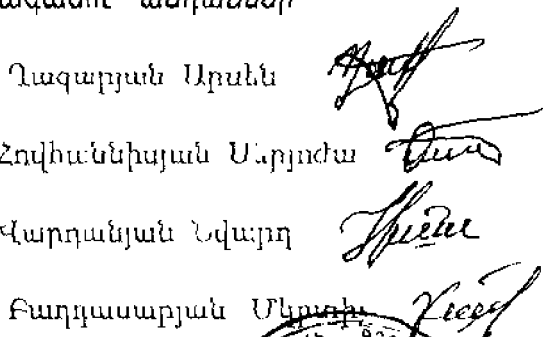 անդամներ
Ղազարյան Արսեն
Հովհաննիսյան Սերյոժա
Վարդանյան Նվարդ
Բաղդասարյան Մկրտիչ